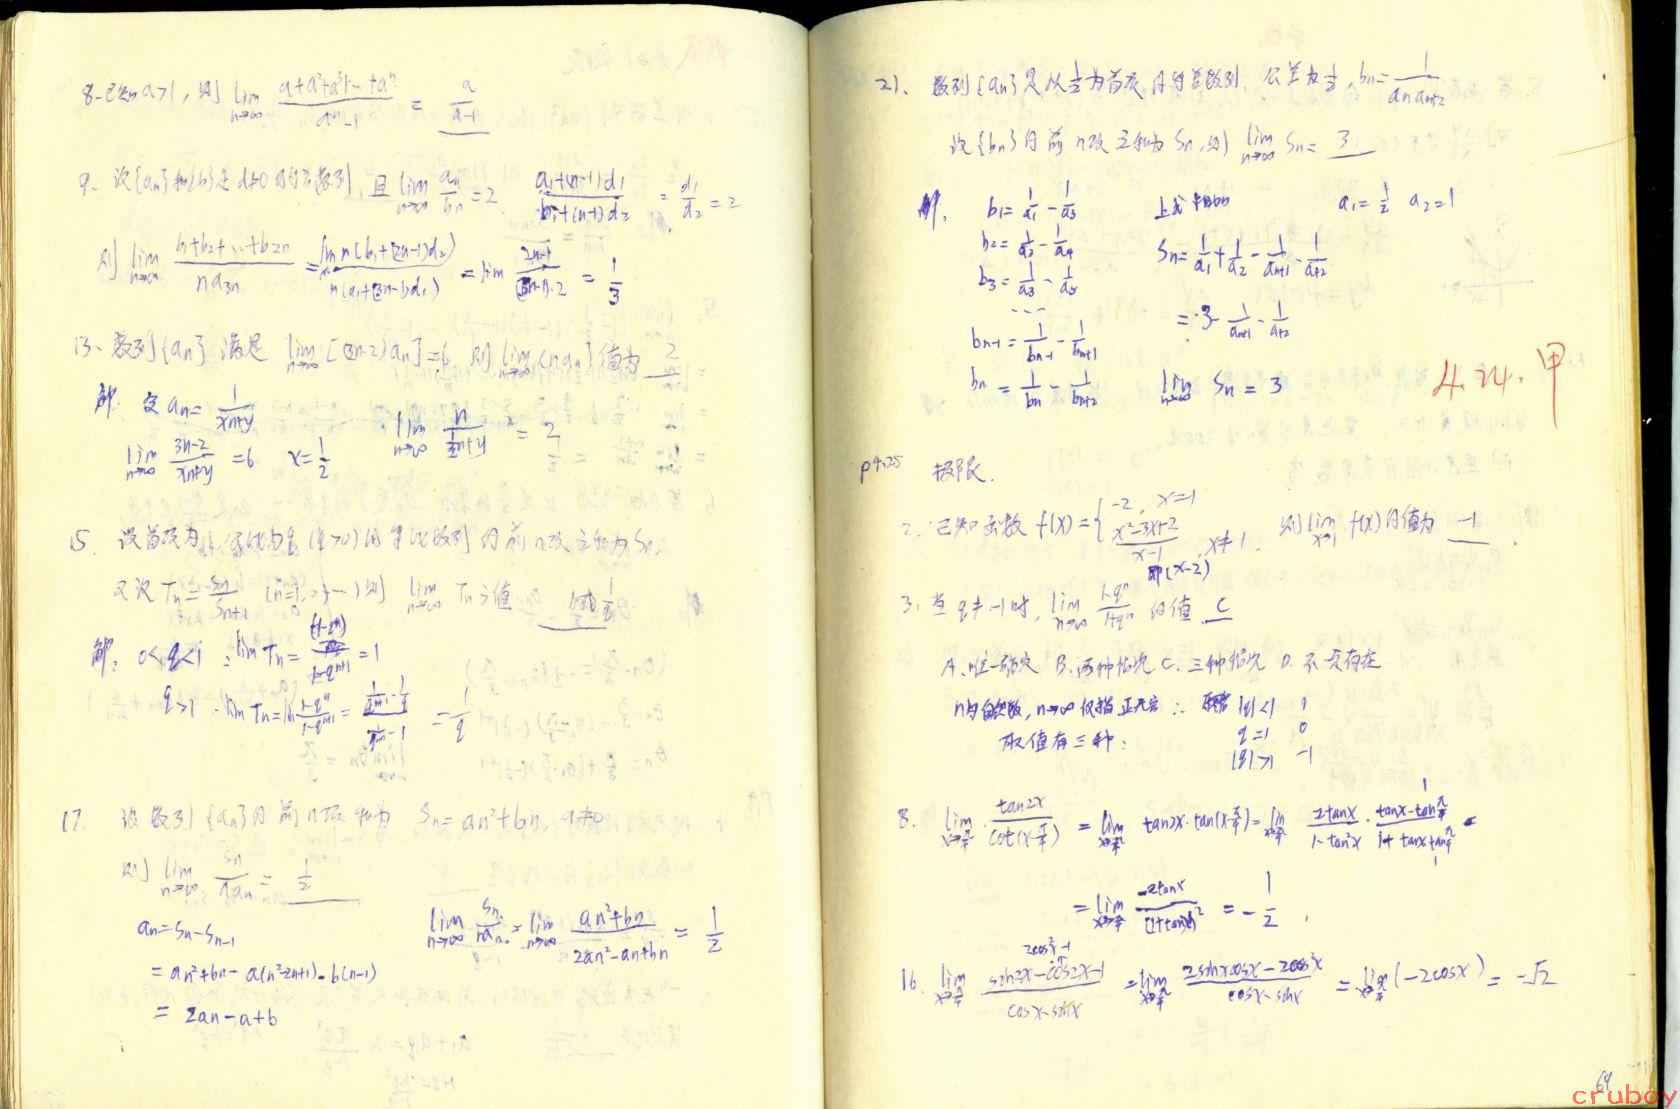 8. 已知a>1, 则 lim n→∞ (a+a²+a³+…+aⁿ)/(aⁿ-1) = a/(a-1)
9. 设{an}和{bn}是d≠0的等差数列, 且 lim n→∞ an/bn = 2 (a₁+(n-1)d₁)/(b₁+(n-1)d₂) = d₁/d₂ = 2
则 lim n→∞ (b₁+b₂+…+b2n)/(na3n) = lim n(b₁+(2n-1)d₂)/n(a₁+(3n-1)d₁) = lim (2n-1)/((3n-1)·2) = 1/3
13. 数列{an}满足 lim n→∞ [(3n-2)an]=6 则 lim n→∞ (nan)值为 2
解. 令 an = 1/(xn+y)
lim n→∞ (3n-2)/(xn+y) = 6 x=1/2 lim n→∞ n/(½n+y) = 2
15. 设首项为1, 公比为q (q>0)的等比数列的前n项之和为Sn,
又设Tn = Sn/Sn+1 (n=1,2,…) 则 lim n→∞ Tn之值 1或1/q
解: 0<q<1 : lim Tn = (1-qⁿ)/(1-qⁿ⁺¹) = 1
q>1 . lim Tn = lim (1-qⁿ)/(1-qⁿ⁺¹) = = 1/q
17. 设数列{an}的前n项和为 Sn=an²+bn, a≠0
则 lim n→∞ Sn/nan = 1/2
an = Sn-Sn-1 lim n→∞ Sn/nan = lim n→∞ (an²+bn)/(2an²-an+bn) = 1/2
= an²+bn-a(n²-2n+1)-b(n-1)
= 2an-a+b
21. 数列{an}是以1/2为首项的等差数列. 公差为1/2, bn = 1/(an an+2)
设{bn}的前n项之和为Sn, 则 lim n→∞ Sn = 3
解. b₁ = 1/a₁ - 1/a₃ 上式相加 a₁=1/2 a₂=1
b₂ = 1/a₂ - 1/a₄ Sn = 1/a₁ + 1/a₂ - 1/an+1 - 1/an+2
b₃ = 1/a₃ - 1/a₅
…
= 3 - 1/an+1 - 1/an+2
bn-1 = 1/bn-1 - 1/bn+1
bn = 1/bn - 1/bn+2 lim n→∞ Sn = 3
4.24. 甲
P4.25 极限.
2. 已知函数 f(x) = { -2, x=1
(x²-3x+2)/(x-1), x≠1. 则 lim x→1 f(x)的值为 -1
即(x-2)
3. 当q≠-1时, lim n→∞ (1-qⁿ)/(1+qⁿ) 的值 C
A. 唯一确定 B. 两种情况 C. 三种情况 D. 不一定存在
n为自然数, n→∞仅指正无穷 ∴ |q|<1 1
取值有三种: q=1 0
|q|>1 -1
8. lim x→π/4 tan2x/cot(x-π/4) = lim x→π/4 tan2x·tan(x-π/4) = lim x→π/4 2tanx/(1-tan²x) · (tanx-tanπ/4)/(1+tanx tanπ/4) =
= lim x→π/4 -2tanx/(1+tanx)² = -1/2
2cos²x-1
16. lim x→π/4 (sin2x-cos2x-1)/(cosx-sinx) = lim x→π/4 (2sinxcosx-2cos²x)/(cosx-sinx) = lim x→π/4 (-2cosx) = -√2
64
cruboy